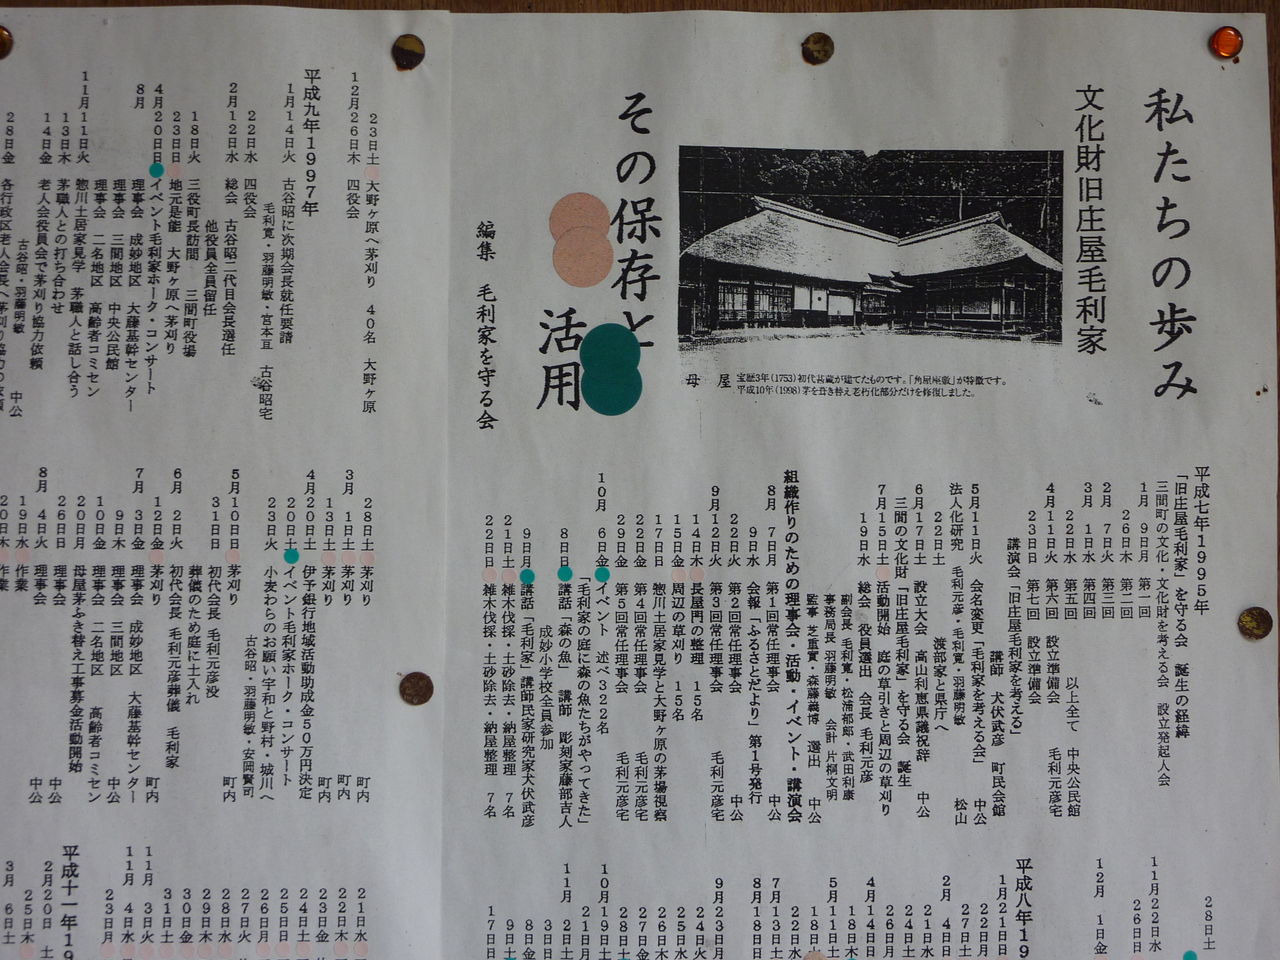 私たちの歩み
文化財旧庄屋毛利家
母屋
宝暦3年(1753)初代甚蔵が建てたものです。「角屋座敷」が特徴です。
平成10年(1998)茅を葺き替え老朽化部分だけを修復しました。
その保存と
活用
編集 毛利家を守る会
平成七年1995年
「旧庄屋毛利家」を守る会 誕生の経緯
三間町の文化・文化財を考える会 設立発起人会
1月 9日月 第一回
26日木 第二回
2月 7日火 第三回
3月 1日水 第四回
22日水 第五回 以上全て 中央公民館
4月11日火 第六回 設立準備会 毛利元彦宅
23日日 第七回 設立準備会
講演会「旧庄屋毛利家を考える」
講師 犬伏武彦 町民会館
5月11日火 会名変更「毛利家を考える会」 中公
法人化研究 毛利元彦・毛利寛・羽藤明敏 松山
22日土 渡部家と県庁へ
6月17日土 設立大会 高山利恵県議祝辞 中公
三間の文化財「旧庄屋毛利家」を守る会 誕生
7月15日土 活動開始 庭の草引きと周辺の草刈り
19日水 総会 役員選出 会長 毛利元彦
副会長 毛利寛・松浦郁郎・武田利康
事務局長 羽藤明敏 会計 片桐文明
監事 芝重寶・森藤義博 選出 中公
組織作りのための理事会・活動・イベント・講演会
8月 7日月 第1回常任理事会 中公
9日水 会報「ふるさとだより」第1号発行
22日火 第2回常任理事会 中公
9月12日火 第3回常任理事会 毛利元彦宅
14日木 長屋門の整理 15名
15日金 周辺の草刈り 15名
17日日 惣川土居家見学と大野ヶ原の茅場視察
22日金 第4回常任理事会 毛利元彦宅
29日金 第5回常任理事会 毛利元彦宅
10月 6日金 イベント 述べ322名
「毛利家の庭に森の魚たちがやってきた」
8日日 講話「森の魚」 講師 彫刻家藤部吉人
成妙小学校全員参加
9日月 講話「毛利家」講師民家研究家犬伏武彦
21日土 雑木伐採・土砂除去・納屋整理 7名
22日日 雑木伐採・土砂除去・納屋整理 7名
28日土
11月22日水
26日日
12月 1日金
平成八年19
1月21日日
22日月
27日土
2月 4日日
21日水
26日月
4月14日日
18日木
5月11日土
18日土
22日水
7月13日土
8月18日日
9月23日月
24日火
25日水
26日木
27日金
28日土
10月19日土
21日月
11月 2日土
3日日
8日金
9日土
17日日
23日土 大野ヶ原へ茅刈り 40名 大野ヶ原
12月26日木 四役会
平成九年1997年
1月14日火 古谷昭に次期会長就任要請
毛利寛・羽藤明敏・宮本亘 古谷昭宅
22日水 四役会
2月12日水 総会 古谷昭二代目会長選任
他役員全員留任
18日火 三役町長訪問 三間町役場
23日日 地元是能 大野ヶ原へ茅刈り
4月20日日 イベント毛利家ホーク・コンサート
8月 理事会 成妙地区 大藤基幹センター
理事会 三間地区 中央公民館
理事会 二名地区 高齢者コミセン
11月11日火 惣川土居家見学 茅職人と話し合う
13日木 茅職人との打ち合わせ
14日金 老人会役員会で茅刈り協力依頼
古谷昭・羽藤明敏 中公
28日金
28日土 茅刈り 町内
3月 1日土 茅刈り 町内
13日土 茅刈り 町内
4月20日土 伊予銀行地域活動助成金50万円決定
20日土 イベント毛利家ホーク・コンサート
23日火 小麦わらのお願い宇和と野村・城川へ
古谷昭・羽藤明敏・安岡賢司
5月10日日 茅刈り 町内
31日日 初代会長 毛利元彦没
葬儀のため庭に土入れ
6月 2日火 初代会長 毛利元彦葬儀 毛利家
12日金 茅刈り 町内
7月 3日金 理事会 成妙地区 大藤基幹センター
9日木 理事会 三間地区 中公
10日金 理事会 二名地区 高齢者コミセン
20日月 母屋茅ふき替え工事募金活動開始
26日日 理事会 中公
8月 4日火 理事会 中公
19日水 作業
20日木 作業
21日水
22日木
23日金
24日土
25日日
26日月
27日火
28日水
29日木
30日金
31日土
11月 3日火
11月 4日水
23日月
平成十一年19
2月20日土
25日木
3月 6日土